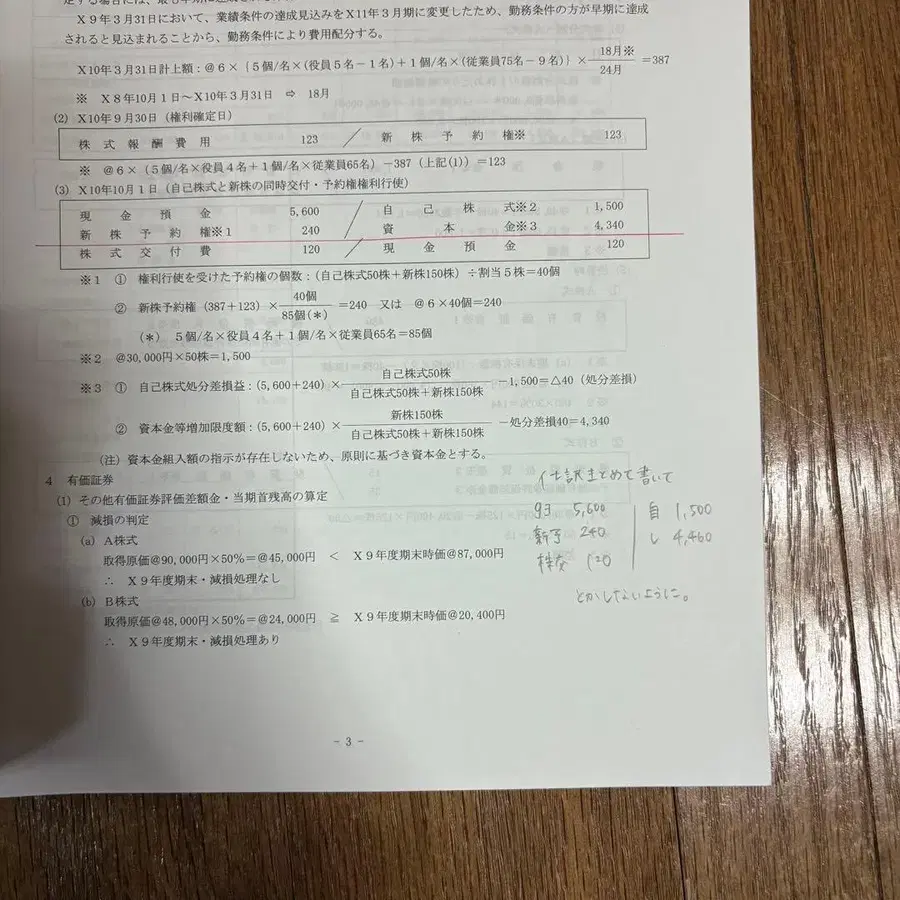 X9年3月31日において、業績条件の達成見込みをX11年3月期に変更したため、勤務条件の方が早期に達成
されると見込まれることから、勤務条件により費用配分する。
X10年3月31日計上額:@6×{5個/名×(役員5名-1名)+1個/名×(従業員75名-9名)}×18月※/24月=387
※ X8年10月1日~X10年3月31日 ⇨ 18月
(2) X10年9月30日(権利確定日)
株式報酬費用 123 / 新株予約権※ 123
※ @6×(5個/名×役員4名+1個/名×従業員65名)-387(上記(1))=123
(3) X10年10月1日(自己株式と新株の同時交付・予約権権利行使)
現金預金 5,600 / 自己株式※2 1,500
新株予約権※1 240 資本金※3 4,340
株式交付費 120 / 現金預金 120
※1 ① 権利行使を受けた予約権の個数:(自己株式50株+新株150株)÷割当5株=40個
② 新株予約権(387+123)×40個/85個(*)=240 又は @6×40個=240
(*) 5個/名×役員4名+1個/名×従業員65名=85個
※2 @30,000円×50株=1,500
※3 ① 自己株式処分差損益:(5,600+240)×自己株式50株/自己株式50株+新株150株-1,500=△40(処分差損)
② 資本金等増加限度額:(5,600+240)×新株150株/自己株式50株+新株150株-処分差損40=4,340
(注) 資本金組入額の指示が存在しないため、原則に基づき資本金とする。
4 有価証券
(1) その他有価証券評価差額金・当期首残高の算定
① 減損の判定
(a) A株式
取得原価@90,000円×50%=@45,000円 < X9年度期末時価@87,000円
∴ X9年度期末・減損処理なし
(b) B株式
取得原価@48,000円×50%=@24,000円 ≧ X9年度期末時価@20,400円
∴ X9年度期末・減損処理あり
仕訳まとめて書いて
現 5,600 自 1,500
新予 240 し 4,460
株交 120
とかしないように。
- 3 -